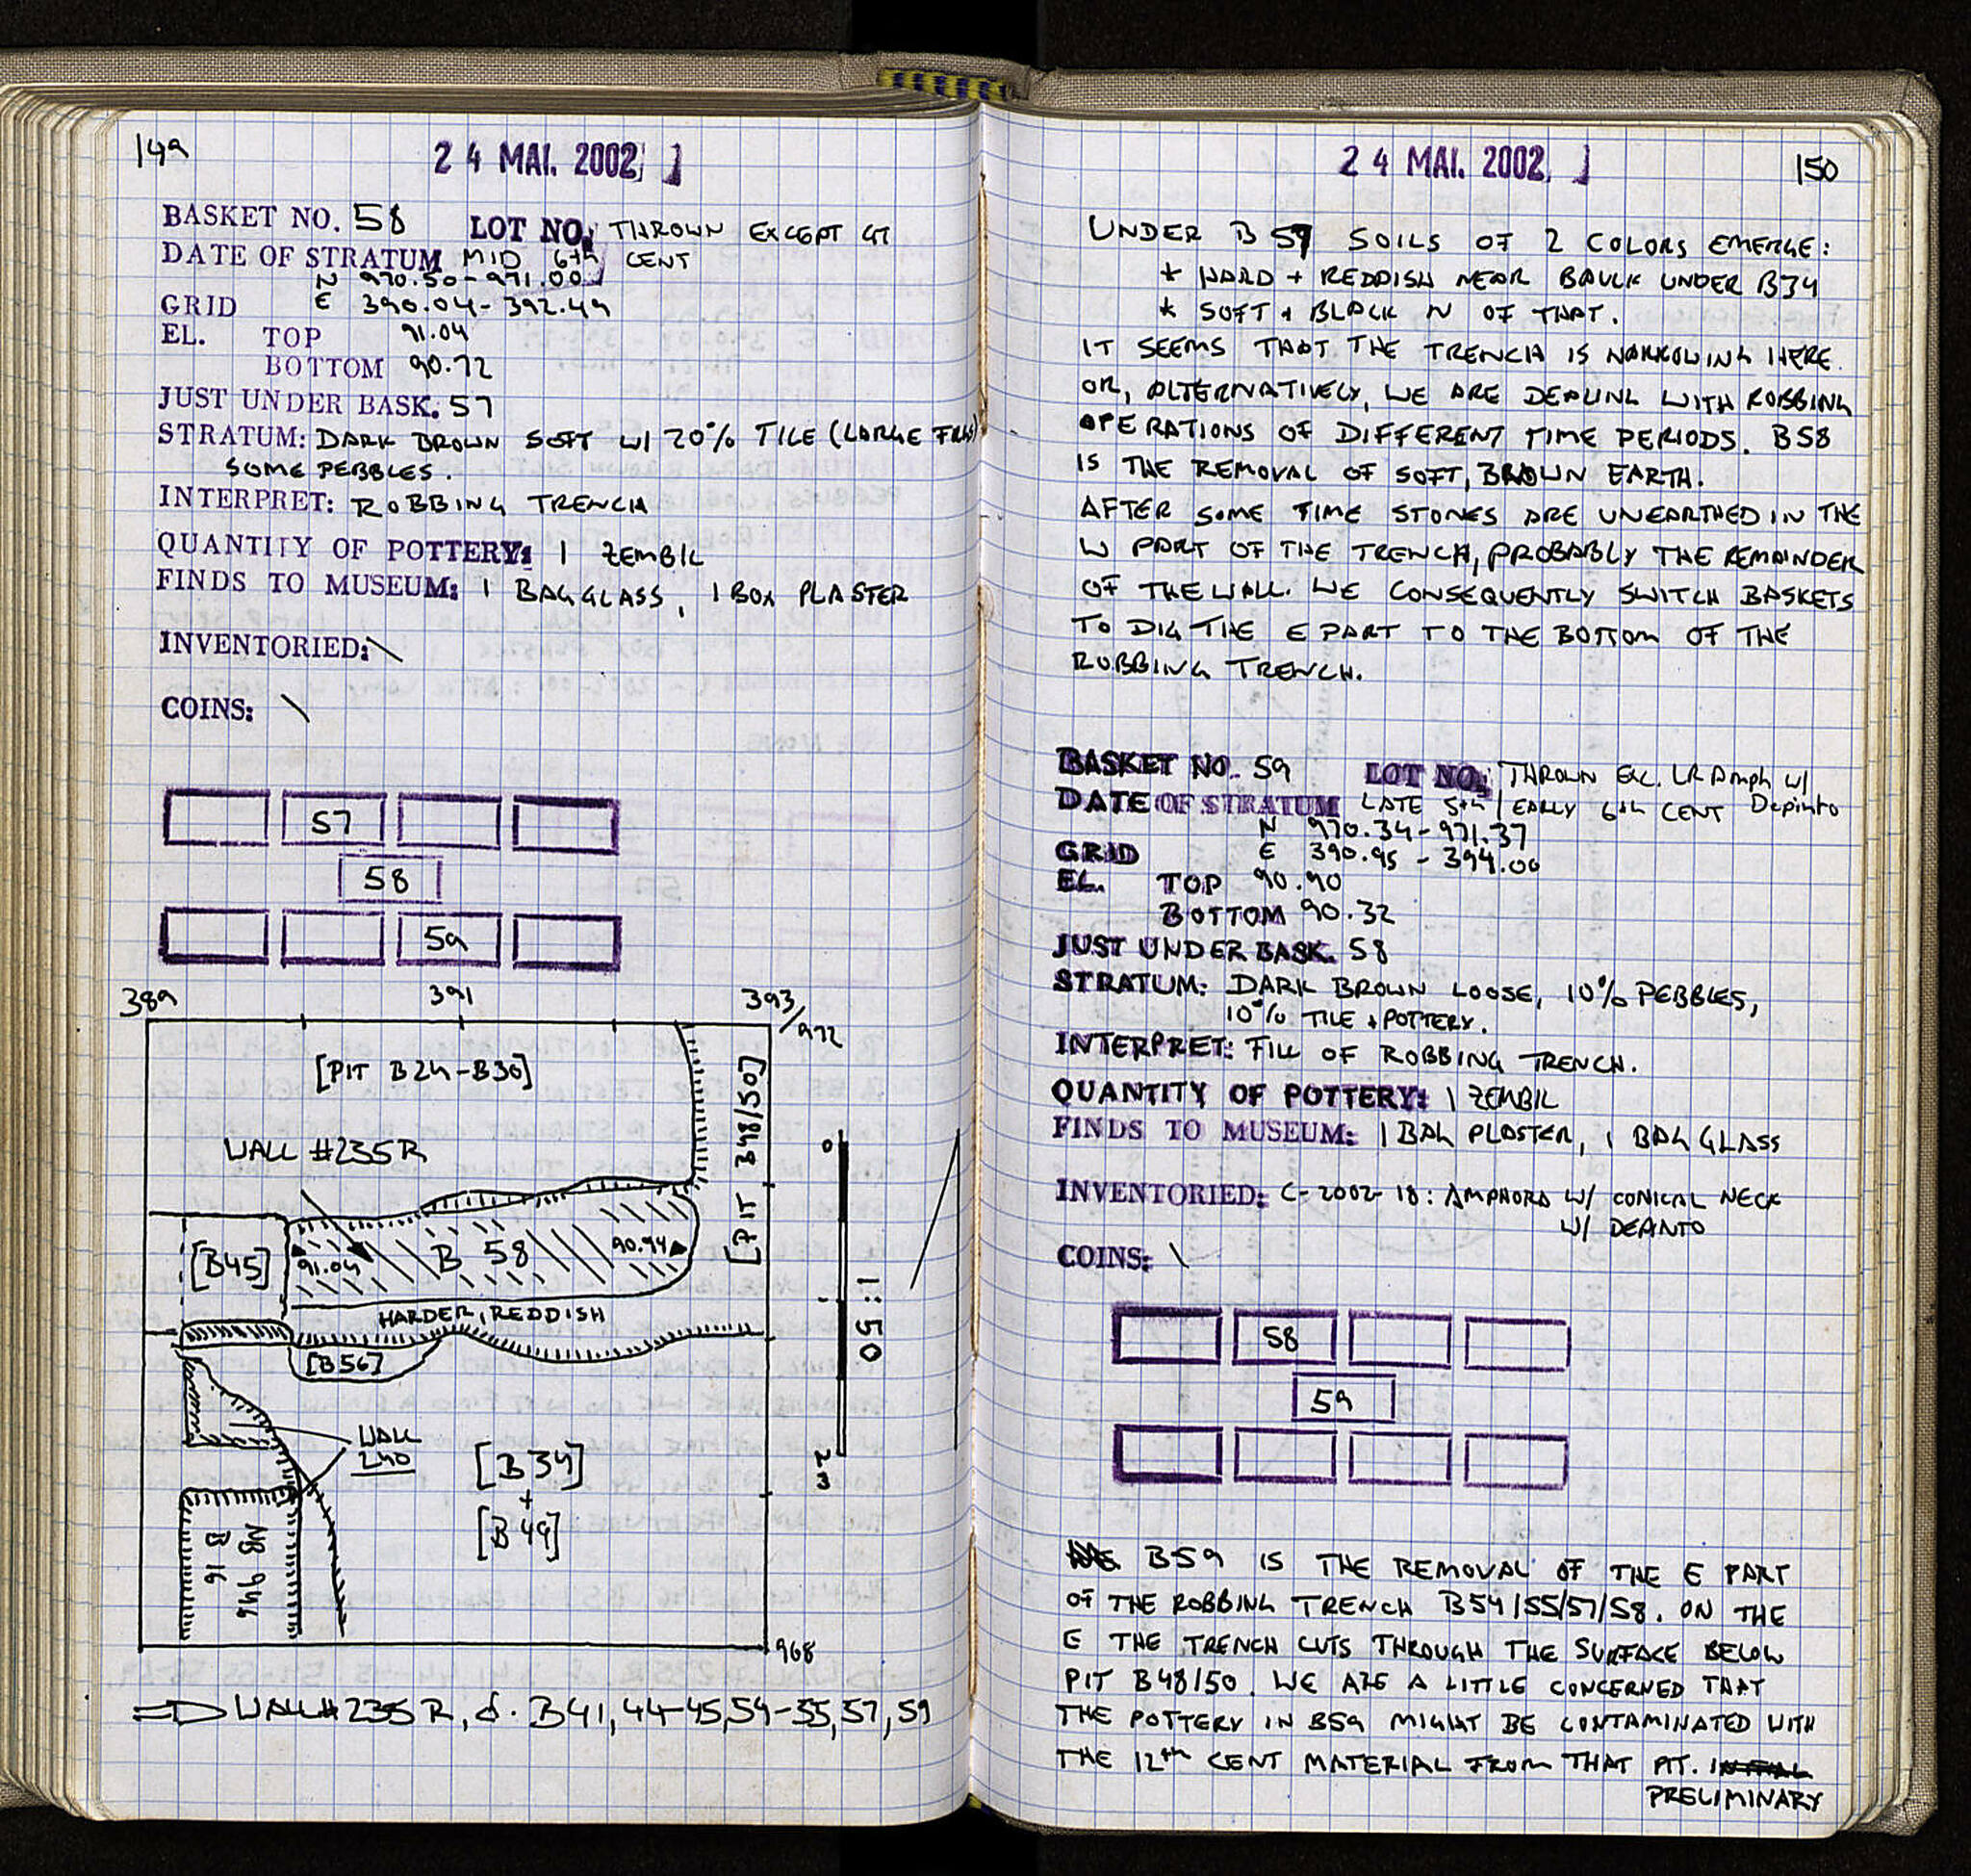 149
24 MAI. 2002
BASKET NO. 58 LOT NO: THROWN EXCEPT GT
DATE OF STRATUM MID 6th CENT
N 970.50-971.00
GRID E 390.04-392.49
EL. TOP 91.04
BOTTOM 90.72
JUST UNDER BASK. 57
STRATUM: DARK BROWN SOFT W/ 20% TILE (LARGE FRGS)
SOME PEBBLES.
INTERPRET: ROBBING TRENCH
QUANTITY OF POTTERY: 1 ZEMBIL
FINDS TO MUSEUM: 1 BAG GLASS, 1 BOX PLASTER
INVENTORIED: \
COINS: \
57
58
59
389 391 393/972
[PIT B24-B30]
[PIT B48/50]
WALL #235R
[B45] 91.04 B 58 90.94
HARDER, REDDISH
[B56]
WALL
240
[B34]
+
[B49]
NB 946
B 16
0
1:50
2m
968
⇒ WALL #235R, cf. B41, 44-45, 54-55, 57, 59
24 MAI. 2002
150
UNDER B 57 SOILS OF 2 COLORS EMERGE:
* HARD + REDDISH NEAR BAULK UNDER B34
* SOFT + BLACK N OF THAT.
IT SEEMS THAT THE TRENCH IS NARROWING HERE.
OR, ALTERNATIVELY, WE ARE DEALING WITH ROBBING
OPERATIONS OF DIFFERENT TIME PERIODS. B58
IS THE REMOVAL OF SOFT, BROWN EARTH.
AFTER SOME TIME STONES ARE UNEARTHED IN THE
W PART OF THE TRENCH, PROBABLY THE REMAINDER
OF THE WALL. WE CONSEQUENTLY SWITCH BASKETS
TO DIG THE E PART TO THE BOTTOM OF THE
ROBBING TRENCH.
BASKET NO. 59 LOT NO: THROWN EXC. LR Amph w/
DATE OF STRATUM LATE 5th / EARLY 6th CENT Depinto
N 970.34-971.37
GRID E 390.95-394.00
EL. TOP 90.90
BOTTOM 90.32
JUST UNDER BASK. 58
STRATUM: DARK BROWN LOOSE, 10% PEBBLES,
10% TILE + POTTERY.
INTERPRET: FILL OF ROBBING TRENCH.
QUANTITY OF POTTERY: 1 ZEMBIL
FINDS TO MUSEUM: 1 BAG PLASTER, 1 BAG GLASS
INVENTORIED: C-2002-18: AMPHORA W/ CONICAL NECK
W/ DEPINTO
COINS: \
58
59
B59 IS THE REMOVAL OF THE E PART
OF THE ROBBING TRENCH B54/55/57/58. ON THE
E THE TRENCH CUTS THROUGH THE SURFACE BELOW
PIT B48/50. WE ARE A LITTLE CONCERNED THAT
THE POTTERY IN B59 MIGHT BE CONTAMINATED WITH
THE 12th CENT MATERIAL FROM THAT PIT.
PRELIMINARY